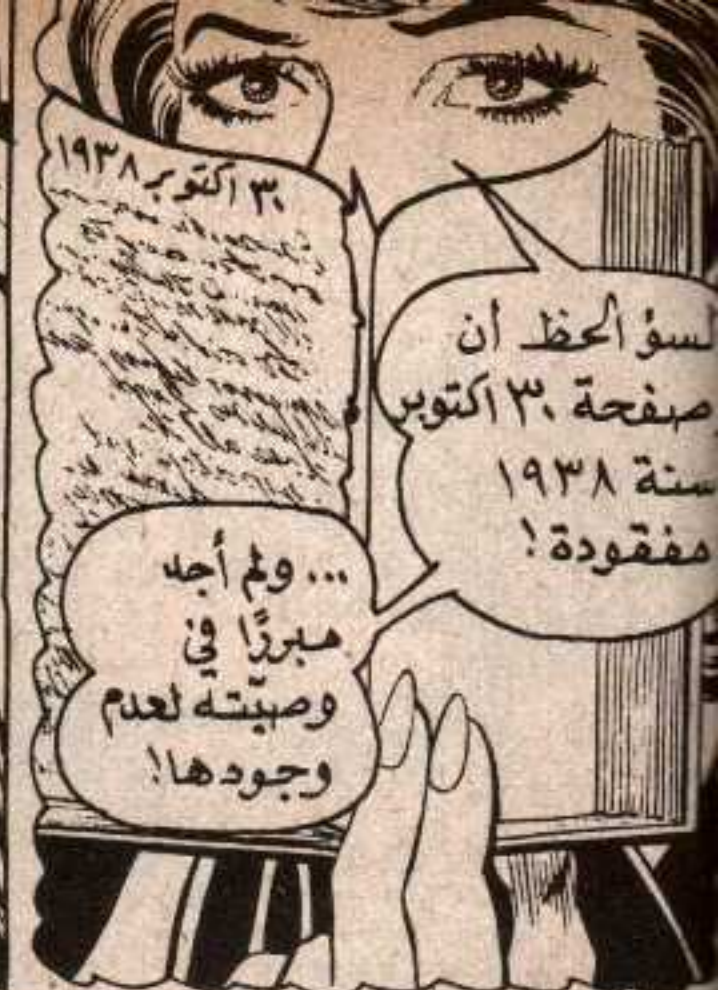 ٣٠ اكتوبر ١٩٣٨
لسؤ الحظ أن
صفحة ٣٠ اكتوبر
سنة ١٩٣٨
مفقودة!
... ولم أجد
مبررًا في
وصيّته لعدم
وجودها!